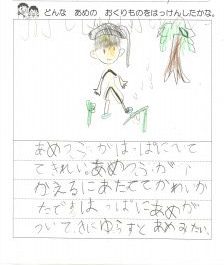 どんな あめの おくりものをはっけんしたかな。
あめつぶがはっぱにいて
てきれい。あめつぶが、
かえるにあたててかわいか
たですはっぱにあめが
ついてきにゆらすとあめみたい。